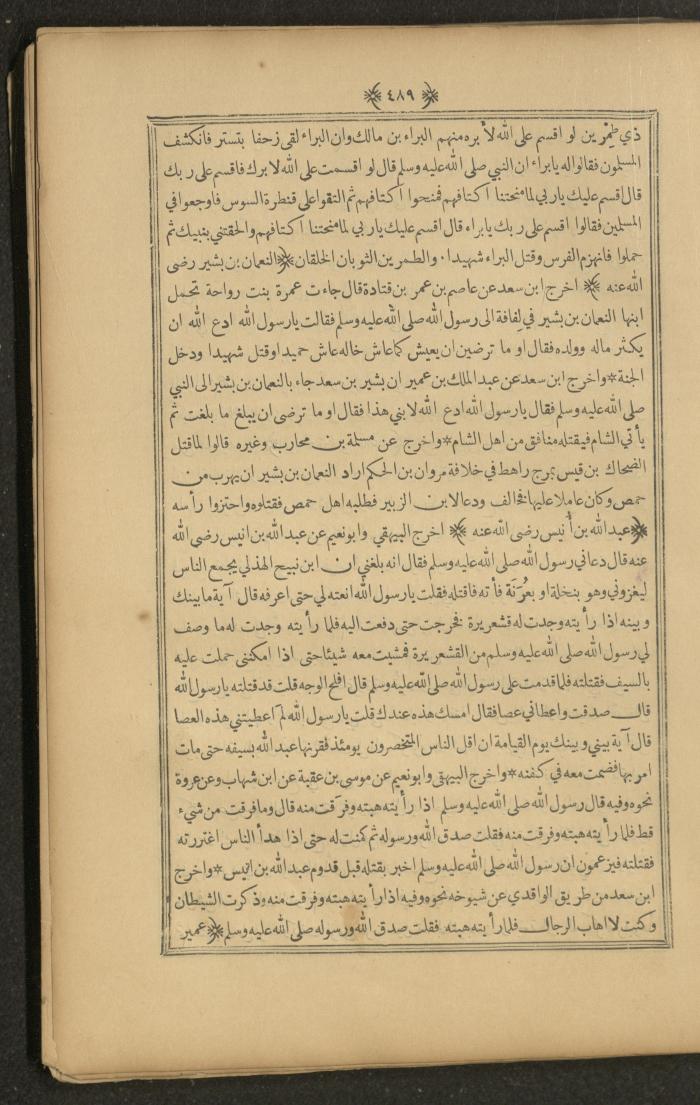 ﴿ ٤٨٩ ﴾
ذي طمرين لو اقسم على الله لأبره منهم البراء بن مالك وان البراء لقى زحفا بتستر فانكشف
المسلمون فقالوا له يا براء ان النبي صلى الله عليه وسلم قال لو اقسمت على الله لا برك فاقسم على ربك
قال اقسم عليك يا ربي لما منحتنا اكتافهم فمنحوا اكتافهم ثم التقوا على قنطرة السوس فاوجعوا في
المسلمين فقالوا اقسم على ربك يا براء قال اقسم عليك يا ربي لما منحتنا اكتافهم والحقتني بنبيك ثم
حملوا فانهزم الفرس وقتل البراء شهيدا . والطمرين الثوبان الخلقان ﴿ النعمان بن بشير رضى
الله عنه ﴾ اخرج ابن سعد عن عاصم بن عمر بن قتادة قال جاءت عمرة بنت رواحة تحمل
ابنها النعمان بن بشير في لفافة الى رسول الله صلى الله عليه وسلم فقالت يا رسول الله ادع الله ان
يكثر ماله وولده فقال او ما ترضين ان يعيش كما عاش خاله عاش حميدا وقتل شهيدا ودخل
الجنة * واخرج ابن سعد عن عبد الملك بن عمير ان بشير بن سعد جاء بالنعمان بن بشير الى النبي
صلى الله عليه وسلم فقال يا رسول الله ادع الله لابني هذا فقال او ما ترضى ان يبلغ ما بلغت ثم
يأتي الشام فيقتله منافق من اهل الشام * واخرج عن مسلمة بن محارب وغيره قالوا لما قتل
الضحاك بن قيس بمرج راهط في خلافة مروان بن الحكم اراد النعمان بن بشير ان يهرب من
حمص وكان عاملا عليها فخالف ودعا لابن الزبير فطلبه اهل حمص فقتلوه واحتزوا رأسه
﴿ عبد الله بن أنيس رضى الله عنه ﴾ اخرج البيهقي وابو نعيم عن عبد الله بن انيس رضى الله
عنه قال دعاني رسول الله صلى الله عليه وسلم فقال انه بلغني ان ابن نبيح الهذلي يجمع الناس
ليغزوني وهو بنخلة او بعُرَنَة فأته فاقتله فقلت يا رسول الله انعته لي حتى اعرفه قال آية ما بينك
وبينه اذا رأيته وجدت له قشعريرة فخرجت حتى دفعت اليه فلما رأيته وجدت له ما وصف
لي رسول الله صلى الله عليه وسلم من القشعريرة فمشيت معه شيئا حتى اذا امكنني حملت عليه
بالسيف فقتلته فلما قدمت على رسول الله صلى الله عليه وسلم قال افلح الوجه قلت قد قتلته يا رسول الله
قال صدقت واعطاني عصا فقال امسك هذه عندك قلت يا رسول الله لم اعطيتني هذه العصا
قال آية بيني وبينك يوم القيامة ان اقل الناس المتخصرون يومئذ فقرنها عبد الله بسيفه حتى مات
امر بها فضمت معه في كفنه * واخرج البيهقي وابو نعيم عن موسى بن عقبة عن ابن شهاب وعن عروة
نحوه وفيه قال رسول الله صلى الله عليه وسلم اذا رأيته هبته وفرقت منه قال وما فرقت من شيء
قط فلما رأيته هبته وفرقت منه فقلت صدق الله ورسوله ثم كمنت له حتى اذا هدأ الناس اغتررته
فقتلته فيزعمون ان رسول الله صلى الله عليه وسلم اخبر بقتله قبل قدوم عبد الله بن انيس * واخرج
ابن سعد من طريق الواقدي عن شيوخه نحوه وفيه اذا رأيته هبته وفرقت منه وذكرت الشيطان
وكنت لا اهاب الرجال فلما رأيته هبته فقلت صدق الله ورسوله صلى الله عليه وسلم ﴿ عمير